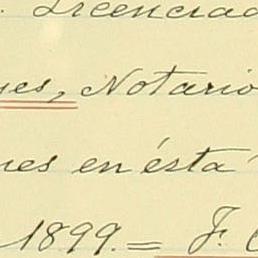 . Licenciad
es, Notario
nes en ésta
1899. = F.